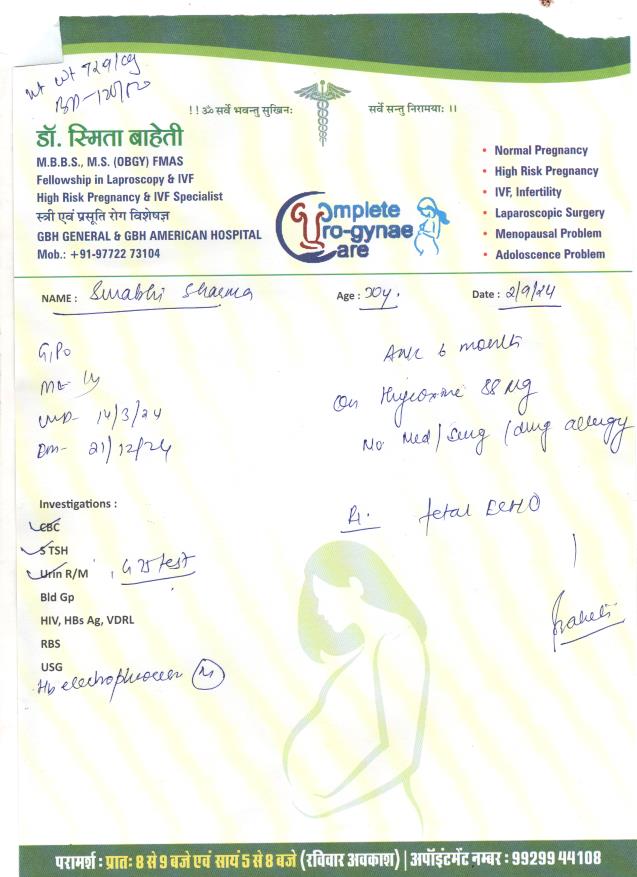 BP-120/80
!! ॐ सर्वे भवन्तु सुखिनः सर्वे सन्तु निरामयाः ।।
डॉ. स्मिता बाहेती
M.B.B.S., M.S. (OBGY) FMAS
Fellowship in Laproscopy & IVF
High Risk Pregnancy & IVF Specialist
स्त्री एवं प्रसूति रोग विशेषज्ञ
GBH GENERAL & GBH AMERICAN HOSPITAL
Mob.: +91-97722 73104
Complete
Uro-gynae
Care
• Normal Pregnancy
• High Risk Pregnancy
• IVF, Infertility
• Laparoscopic Surgery
• Menopausal Problem
• Adoloscence Problem
NAME : Surabhi Sharma Age : 30y. Date : 2/9/24
G1P0
14/3/24
21/12/24
6 months
On Thyroxine 88 µg
No Med/Surg/drug allergy
Investigations :
CBC
S TSH
Urin R/M
Bld Gp
HIV, HBs Ag, VDRL
RBS
USG
Hb electrophoresis (N)
fetal ECHO
परामर्श : प्रातः 8 से 9 बजे एवं सायं 5 से 8 बजे (रविवार अवकाश) | अपॉइंटमेंट नम्बर : 99299 44108